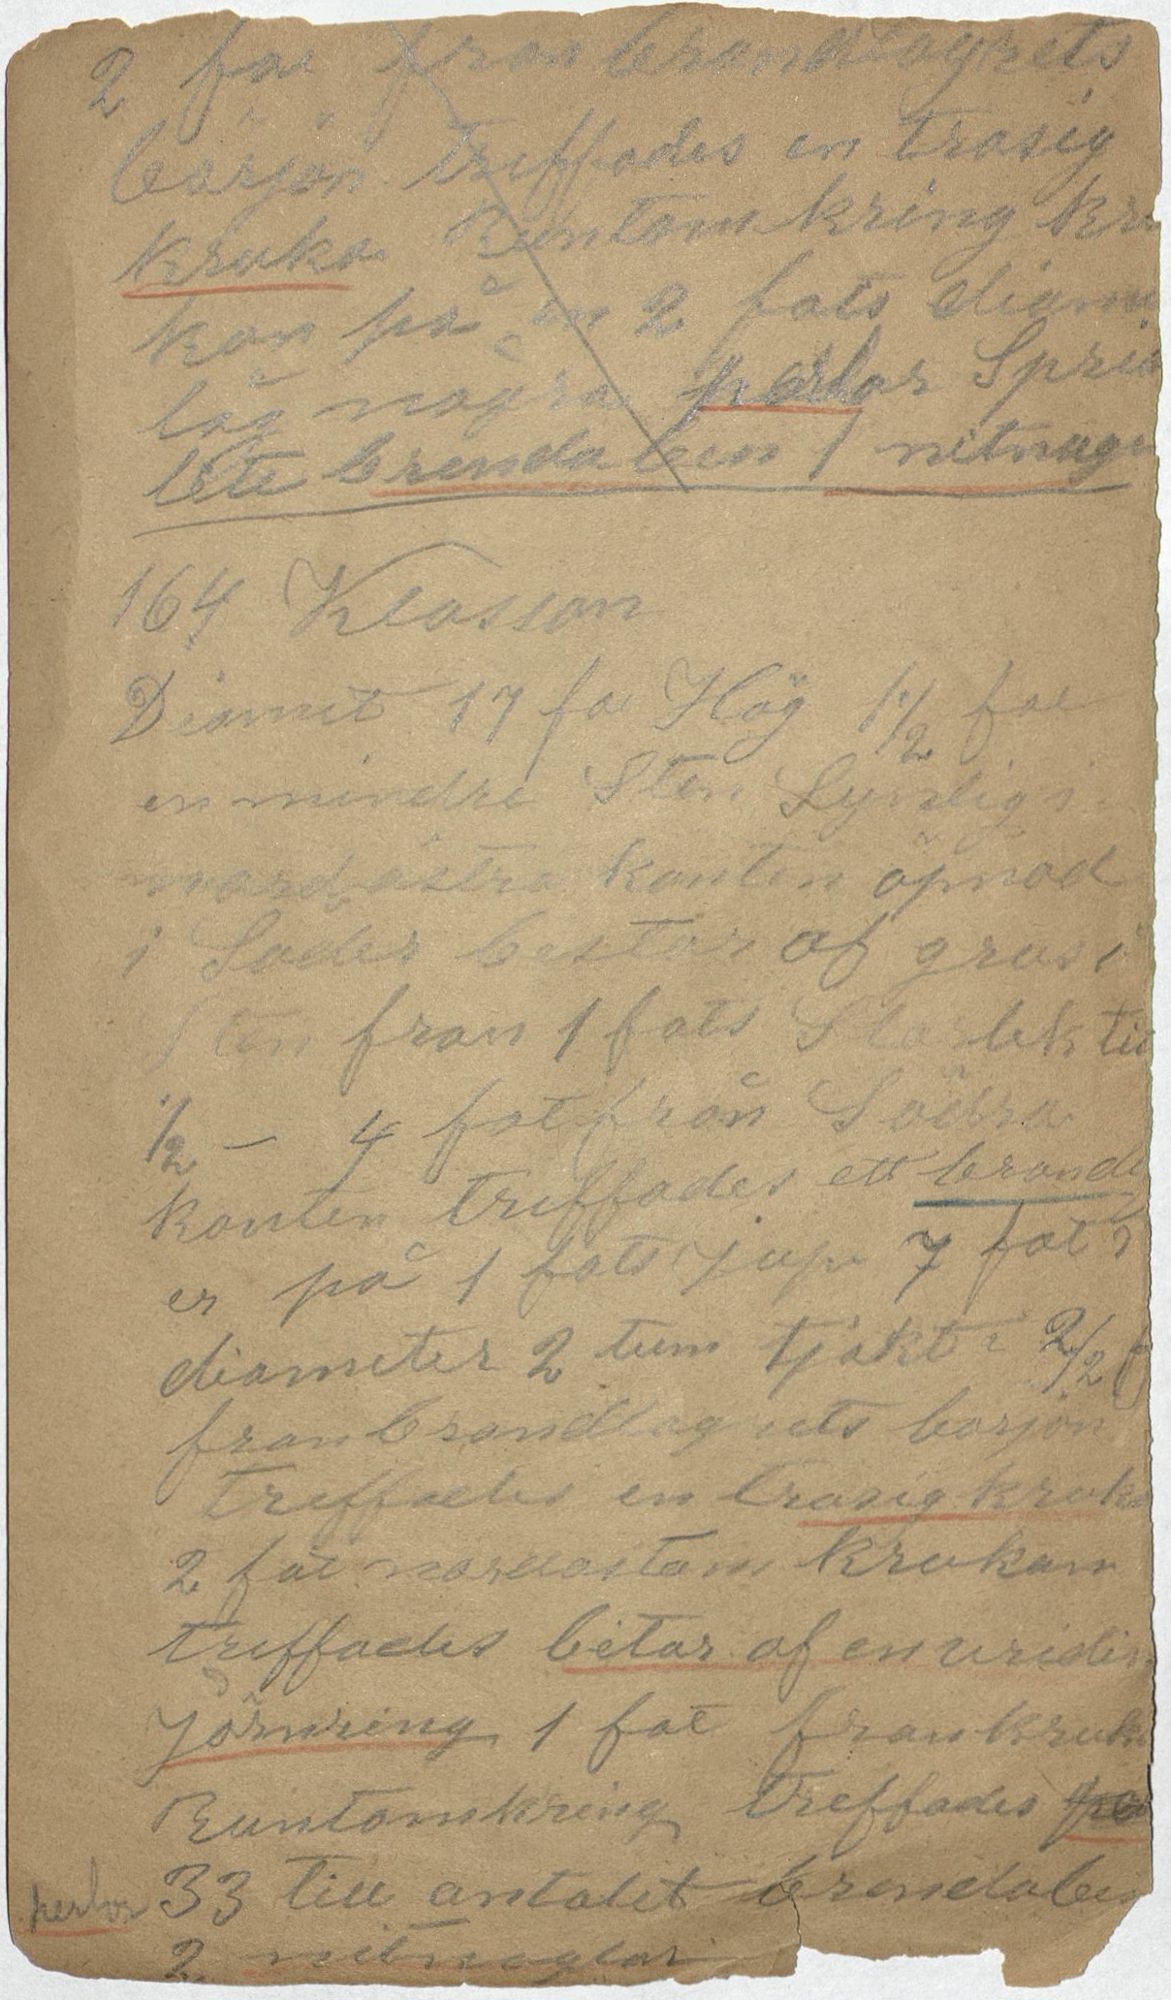 2 fot från brandlagrets
börjon treffades en trasig
kruka Runtomkring kru
kan på en 2 fots diam
låg några perlor Sprid
lste brenda ben 1 nitnage
164 Klasson
Diamet 17 fot Hög 1 1/2 fot
en mindre Sten Synligs
nordöstra kanten öpnad
i Söder bestar af grus i
Sten fran 1 fots Storlek till
1/2 — 4 fot från Södra
kanten treffades ett brandl
er på 1 fots jup 7 fot i
diameter 2 tum tjokt 2 1/2 f
fran brandlagrets borjon
treffades en trasig kruka
2 fot nordostom krukan
treffades bitar af en vriden
Jörnring 1 fot fran kruk
Runtomkring treffades per
perlor 33 till antalet brenda ben
2 nitnaglar